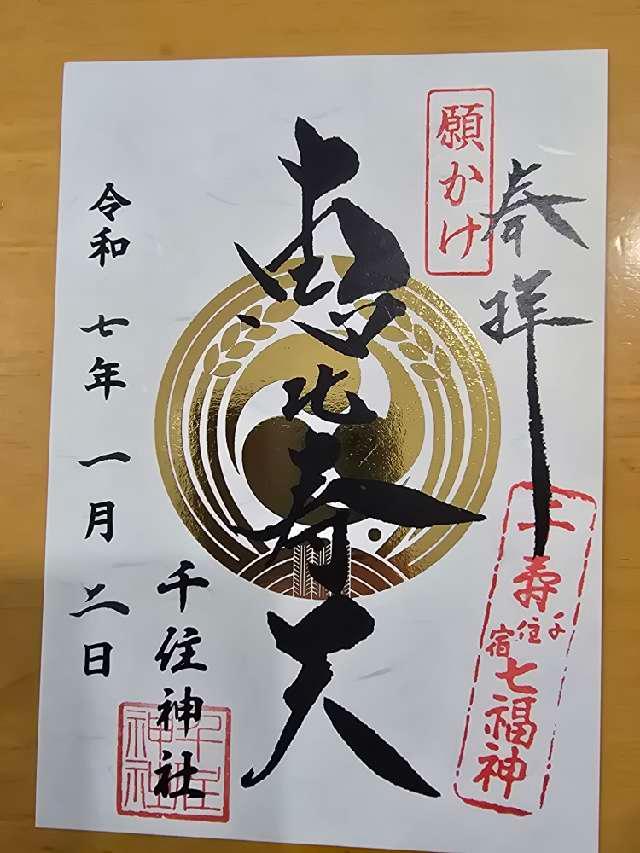 奉拝
願かけ
千寿
千住宿
七福神
恵比寿天
千住神社
千住神社
令和 七年 一月 二日